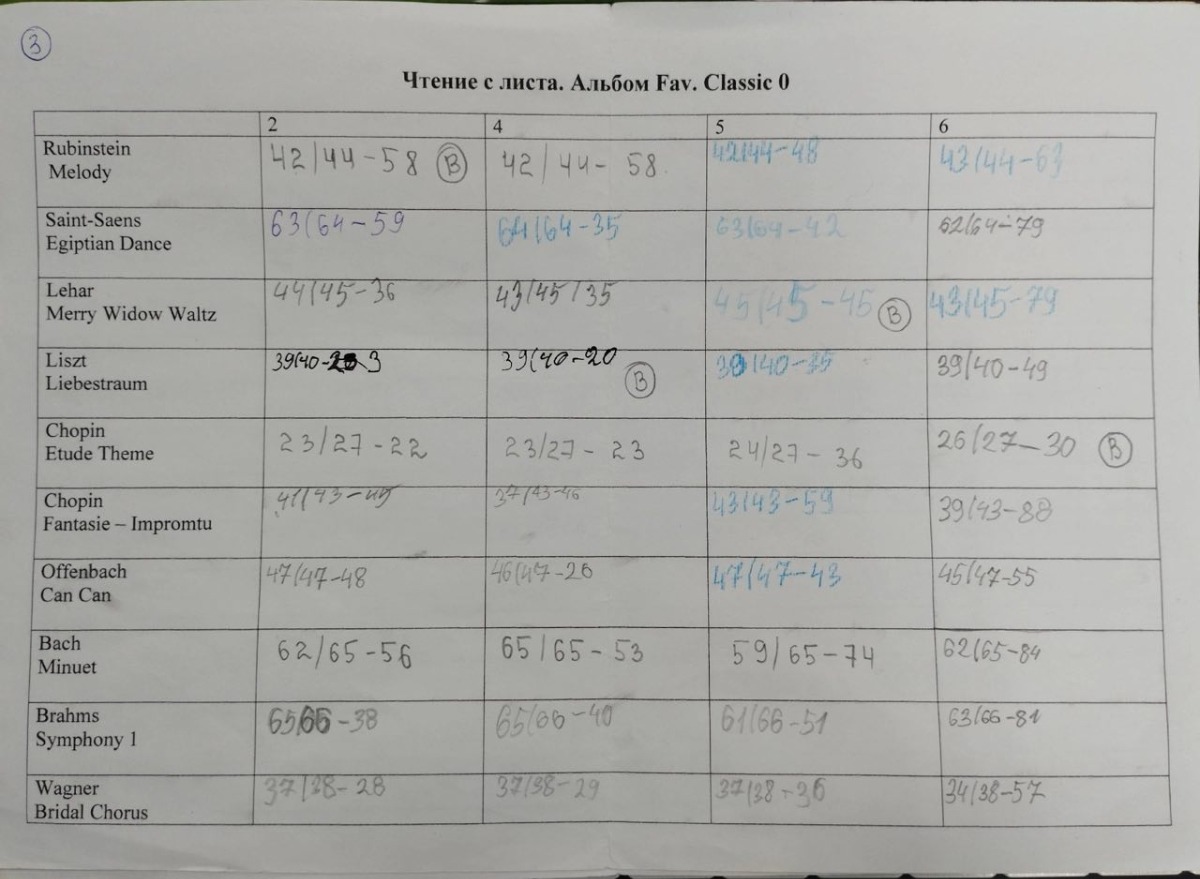 3
Чтение с листа. Альбом Fav. Classic 0
2 4 5 6
Rubinstein
Melody
42/44-58 В 42/44- 58 42/44-48 43/44-63
Saint-Saens
Egiptian Dance
63/64-59 64/64-35 63/64-42 62/64-79
Lehar
Merry Widow Waltz
44/45-36 43/45/35 45/45-45 В 43/45-79
Liszt
Liebestraum
39/40- 3 39/40-20 В 39/40-35 39/40-49
Chopin
Etude Theme
23/27-22 23/27- 23 24/27- 36 26/27-30 В
Chopin
Fantasie – Impromtu
41/43-45 37/43-46 43/43-59 39/43-88
Offenbach
Can Can
47/47-48 46/47-26 47/47-43 45/47-55
Bach
Minuet
62/65-56 65/65-53 59/65-74 62/65-84
Brahms
Symphony 1
65/66-38 65/66-40 61/66-51 63/66-81
Wagner
Bridal Chorus
37/38-28 37/38-29 37/38-36 34/38-57